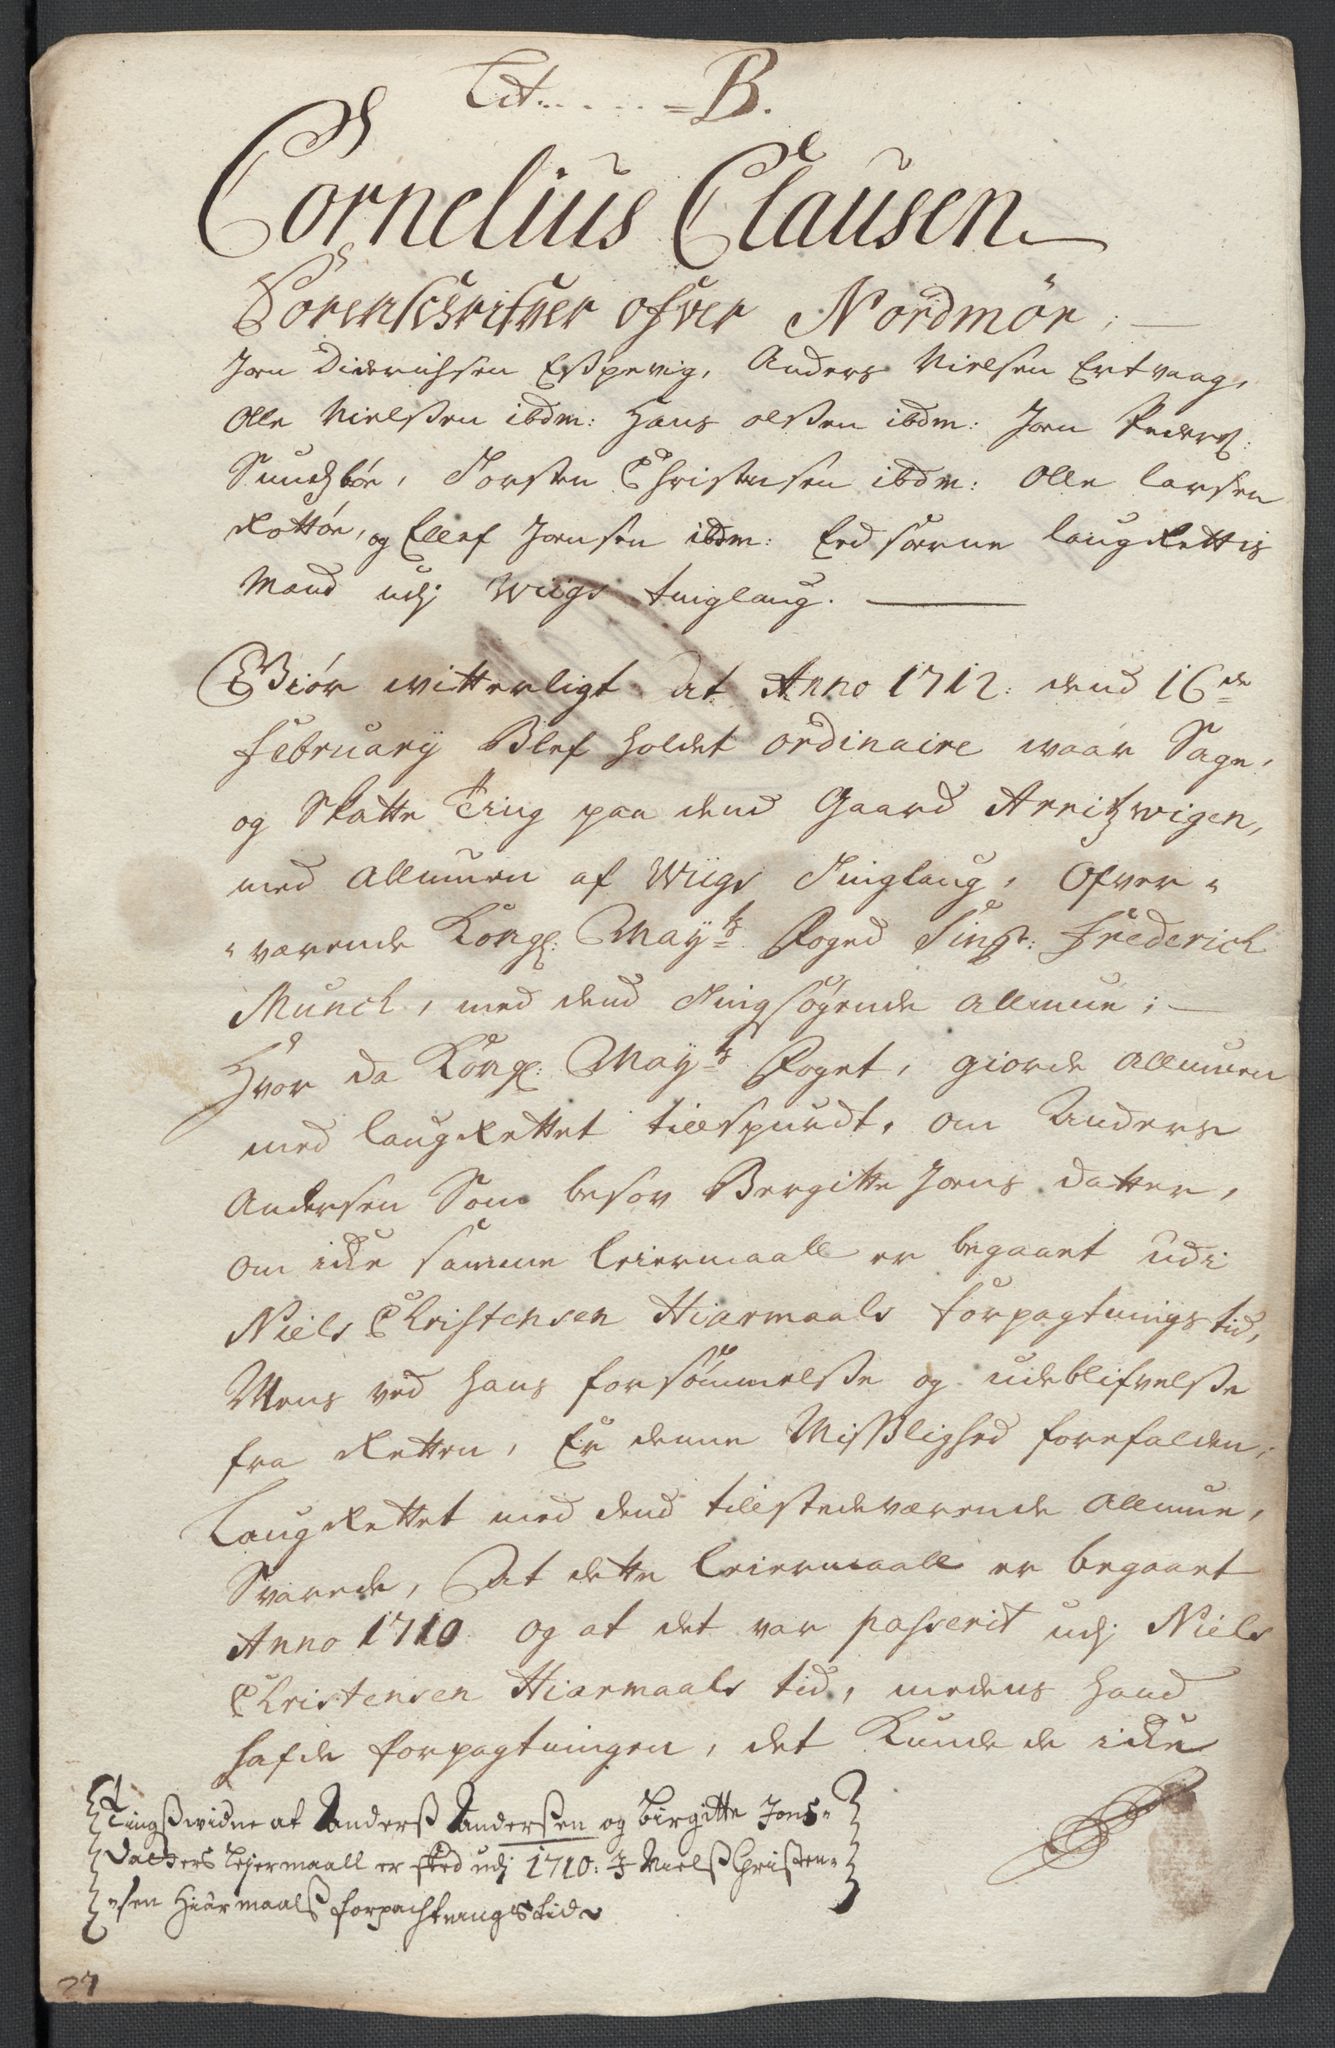 Lit. . . . . = B.
Cornelius Clausen
Sorenschrifver ofver Nordmör; —
Jon Diderichsen Espevig, Anders Nielsen Ertvaag,
Olle Nielsen ibdm: Hans olsen ibdm: Jon Peders:
Sundsbøe, Torsten Christensen ibdm: Olle Larsen
Rottøe, og Ellef Jonsen ibdm: Eedsorne laugRettis
Mænd udj Wiigs tinglaug. —
Giör witterligt at Anno 1712: dend 16de
February Blef holdet ordinaire waar Sage,
og Skatte Ting paa dend Gaard Arnitzwigen,
med Allmuen af Wiigs Tinglaug, Ofver=
=værende Kongl: May:ts Foged Sing:r Frederich
Munch, med dend Tingsøgende Allmue; —
Hvor da Kongl: May:ts Foget, giorde Allmuen
med laugRettet tillspurdt, om Anders
Andersen Som besov Bergitte Jons datter,
om icke samme Leiermaall er begaaet udi
Niels Christensen Hiarmaals forpagtnings tid,
Mens ved hans forsømmelse og udeblifvelse
fra Retten, Er denne Misslighed forefalden,
LaugRettet med dend tillstedeværende Allmue,
Svarede, At dette Leiermaall er begaaet
Anno 1710 og at det var passerit udj Niels
Christensen Hiarmaals tid, medens hand
hafde forpagtningen, det Kunde de icke
Tingswidne at Anderss Anderssen og Birgitte Jons=
Datters Lejermaall er sked udj 1710: J Nielss Christen=
=sen Hiärmaalss forpachtnings tid
27